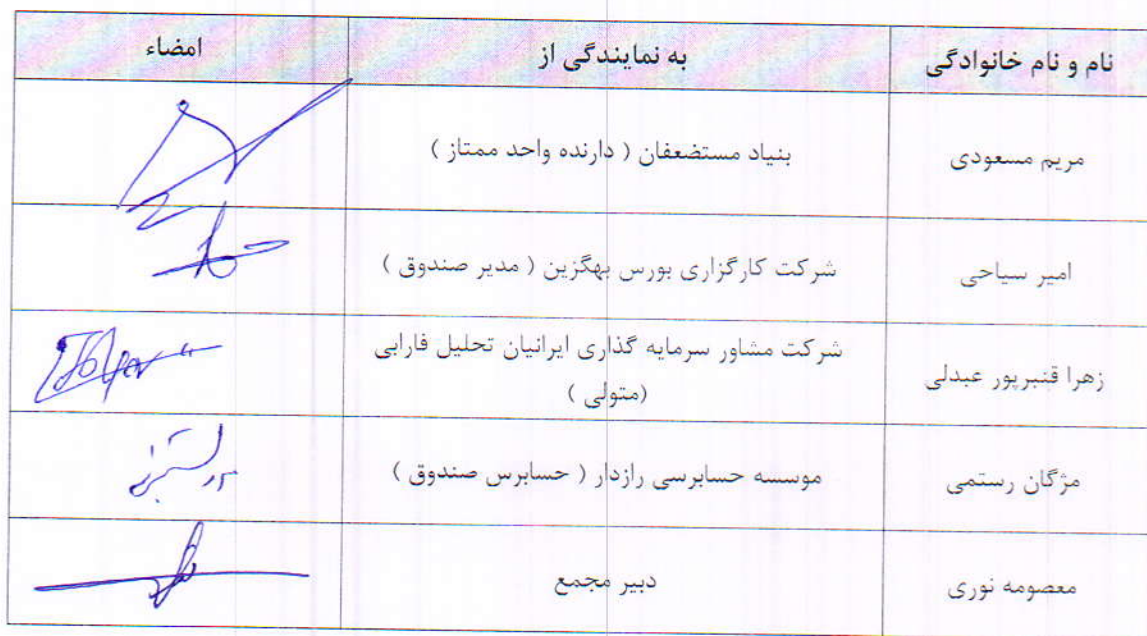 نام و نام خانوادگی	به نمایندگی از	امضاء
مریم مسعودی	بنیاد مستضعفان ( دارنده واحد ممتاز )
امیر سیاحی	شرکت کارگزاری بورس بهگزین ( مدیر صندوق )
زهرا قنبرپور عبدلی	شرکت مشاور سرمایه گذاری ایرانیان تحلیل فارابی
(متولی )
مژگان رستمی	موسسه حسابرسی رازدار ( حسابرس صندوق )
معصومه نوری	دبیر مجمع